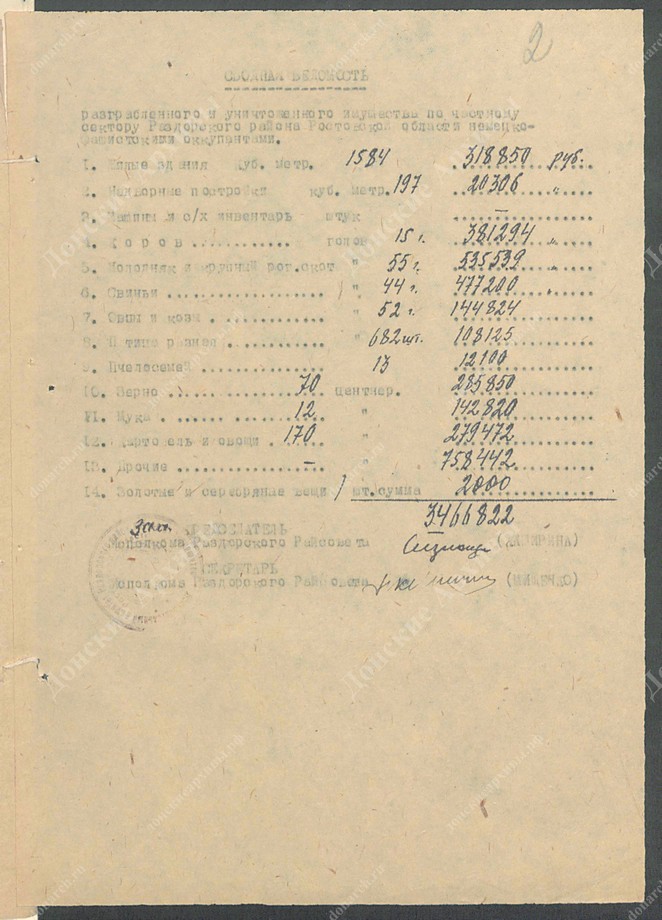 2
СВОДНАЯ ВЕДОМОСТЬ
разграбленного и уничтоженного имущества по частному
сектору Раздорского района Ростовской области немецко-
фашистскими оккупантами.
1. Жилые здания куб. метр. 1584 318850 руб.
2. Надворные постройки куб. метр. 197 20306 "
3. Машины и с/х инвентарь штук –
4. Коров ............. голов 15 г. 381294 "
5. Молодняк и крупный рог.скот " 55 г. 535539 "
6. Свиньи .................... " 44 г. 477200 "
7. Овцы и козы . ............. " 52 г. 144824
8. Птицы разная .............. " 682 шт. 108125
9. Пчелосемей ................ " 13 12100
10. Зерно .................70 центнер. 285850
11. Мука . ................12 " 142820
12. Картофель и овощи . 170 " 279472
13. Прочие ................– " 758442
14. Золотые и серебряные вещи 1 шт.сумма 2000
3466822
ПРЕДСЕДАТЕЛЬ
Исполкома Раздорского Райсовета
СЕКРЕТАРЬ
Исполкома Раздорского Райсовета (МИЩЕЧКО)
Донские
donarch.ru